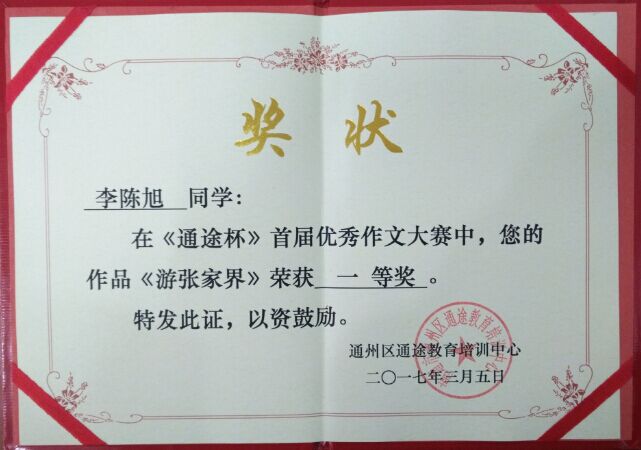 奖 状
李陈旭 同学:
在《通途杯》首届优秀作文大赛中，您的
作品《游张家界》荣获 一 等奖 。
特发此证，以资鼓励。
通州区通途教育培训中心
二〇一七年三月五日